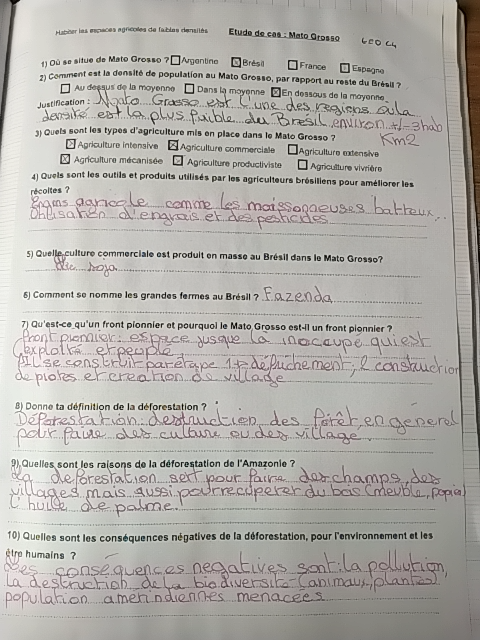 Habiter les espaces agricoles de faibles densités Etude de cas : Mato Grosso GEO C4
1) Où se situe de Mato Grosso ? Argentine Brésil France Espagne
2) Comment est la densité de population au Mato Grosso, par rapport au reste du Brésil ?
Au dessus de la moyenne Dans la moyenne En dessous de la moyenne
Justification : Mato Grosso est l'une des régions où la
densité est la plus faible du Brésil, environ +/- 3hab
Km2
3) Quels sont les types d'agriculture mis en place dans le Mato Grosso ?
Agriculture intensive Agriculture commerciale Agriculture extensive
Agriculture mécanisée Agriculture productiviste Agriculture vivrière
4) Quels sont les outils et produits utilisés par les agriculteurs brésiliens pour améliorer les
récoltes ?
Engins agricole comme les moissonneuses batteux...
Utilisation d'engrais et des pesticides
5) Quelle culture commerciale est produit en masse au Brésil dans le Mato Grosso?
soja
6) Comment se nomme les grandes fermes au Brésil ? Fazenda
7) Qu'est-ce qu'un front pionnier et pourquoi le Mato Grosso est-il un front pionnier ?
front pionnier : espace jusque la inoccupé qui est
exploité et peuplé
Il se construit par étape 1 défrichement, 2 construction
de pistes et creation de village
8) Donne ta définition de la déforestation ?
Déforestation destruction des forêt, en general
pour faire des culture ou des village.
9) Quelles sont les raisons de la déforestation de l'Amazonie ?
La deforestation sert pour faire des champs, des
villages mais aussi pour recuperer du bois (meuble, papier)
l'huile de palme.
10) Quelles sont les conséquences négatives de la déforestation, pour l'environnement et les
être humains ?
Les conséquences negatives sont : la pollution,
la destruction de la biodiversité (animaux, plantes)
population amerindiennes menacees